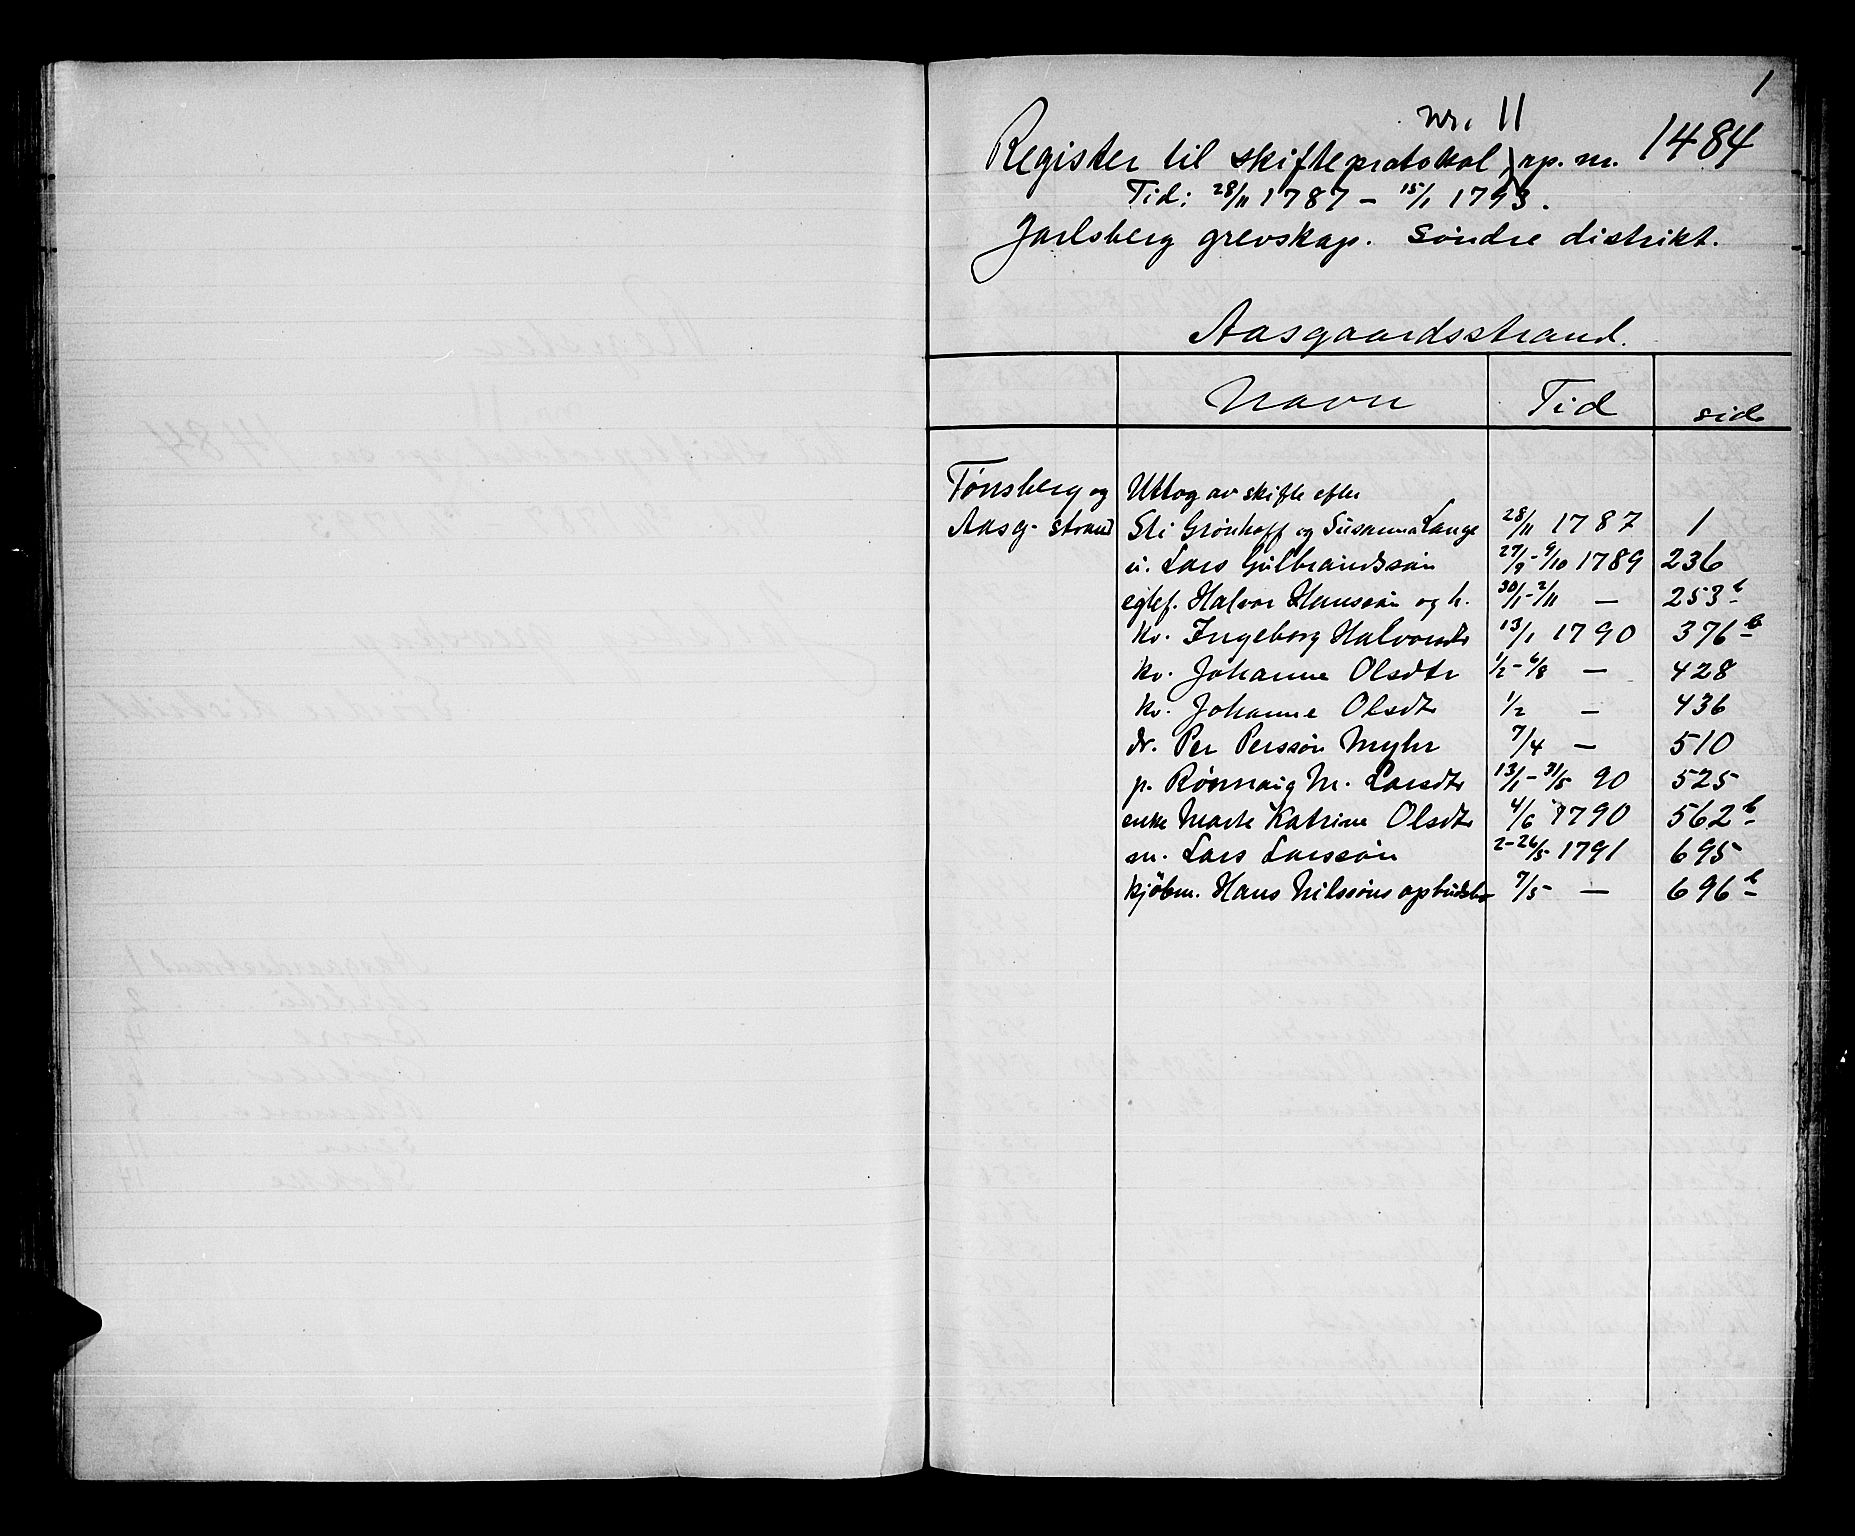 1
nr. 11
Register til skifteprotokol, op. nr. 1484
Tid: 28/11 1787 – 15/1 1793.
Jarlsberg grevskap. Søndre distrikt.
Aasgaardsstrand.
Navn Tid side
Tønsberg og Uttog av skifte efter
Aasg. strand Sti Grønhoff og Susanna Lange 28/11 1787 1
u. Lars Gulbrandssøn 27/9 - 9/10 1789 236
Halvor Hanssøn og h. 30/1 - 2/11 — 253b
kv. Ingeborg Halvorsdtr 13/1 1790 376b
kv. Johanne Olsdtr 1/2 - 6/8 — 428
kv. Johanne Olsdtr 1/2 — 436
dr. Per Perssøn Myhr 7/4 — 510
p. Rønnaug M. Larsdtr 13/1 - 31/5 90 525
enke Marte Katrine Olsdtr 4/6 1790 562b
m. Lars Larssøn 2-26/5 1791 695
kjöbm. Hans Nilssøns opbudsbo 7/5 — 696b